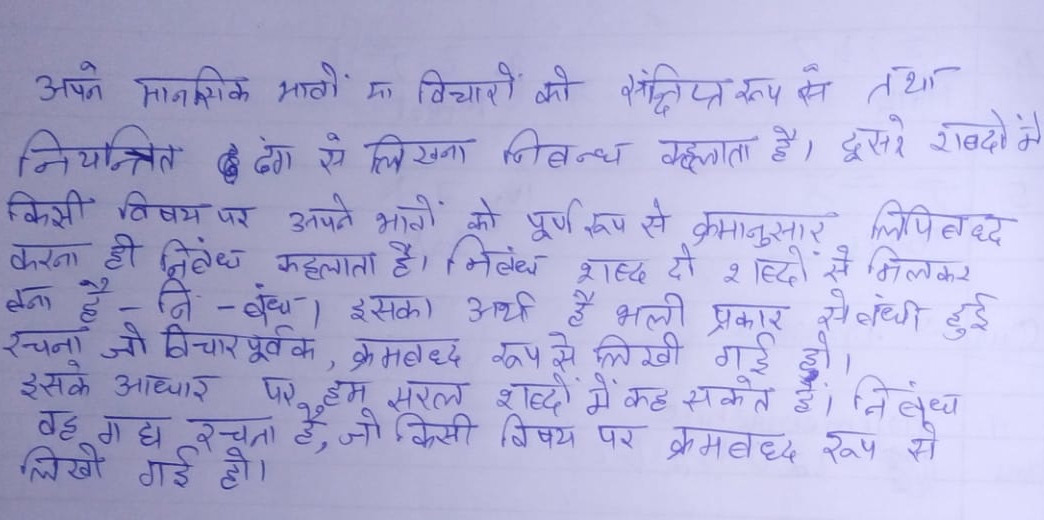 अपने मानसिक भावों या विचारों को संक्षिप्त रूप से तथा
नियन्त्रित ढंग से लिखना निबन्ध कहलाता है। दूसरे शब्दों में
किसी विषय पर अपने भावों को पूर्ण रूप से क्रमानुसार लिपिबध्द
करना ही निबंध कहलाता है। निबंध शब्द दो शब्दों से मिलकर
बना है - नि - बंध। इसका अर्थ है भली प्रकार से बंधी हुई
रचना जो विचारपूर्वक, क्रमबध्द रूप से लिखी गई हो।
इसके आधार पर हम सरल शब्दों में कह सकते हैं। निबंध
वह गद्य रचना है, जो किसी विषय पर क्रमबध्द रूप से
लिखी गई हो।